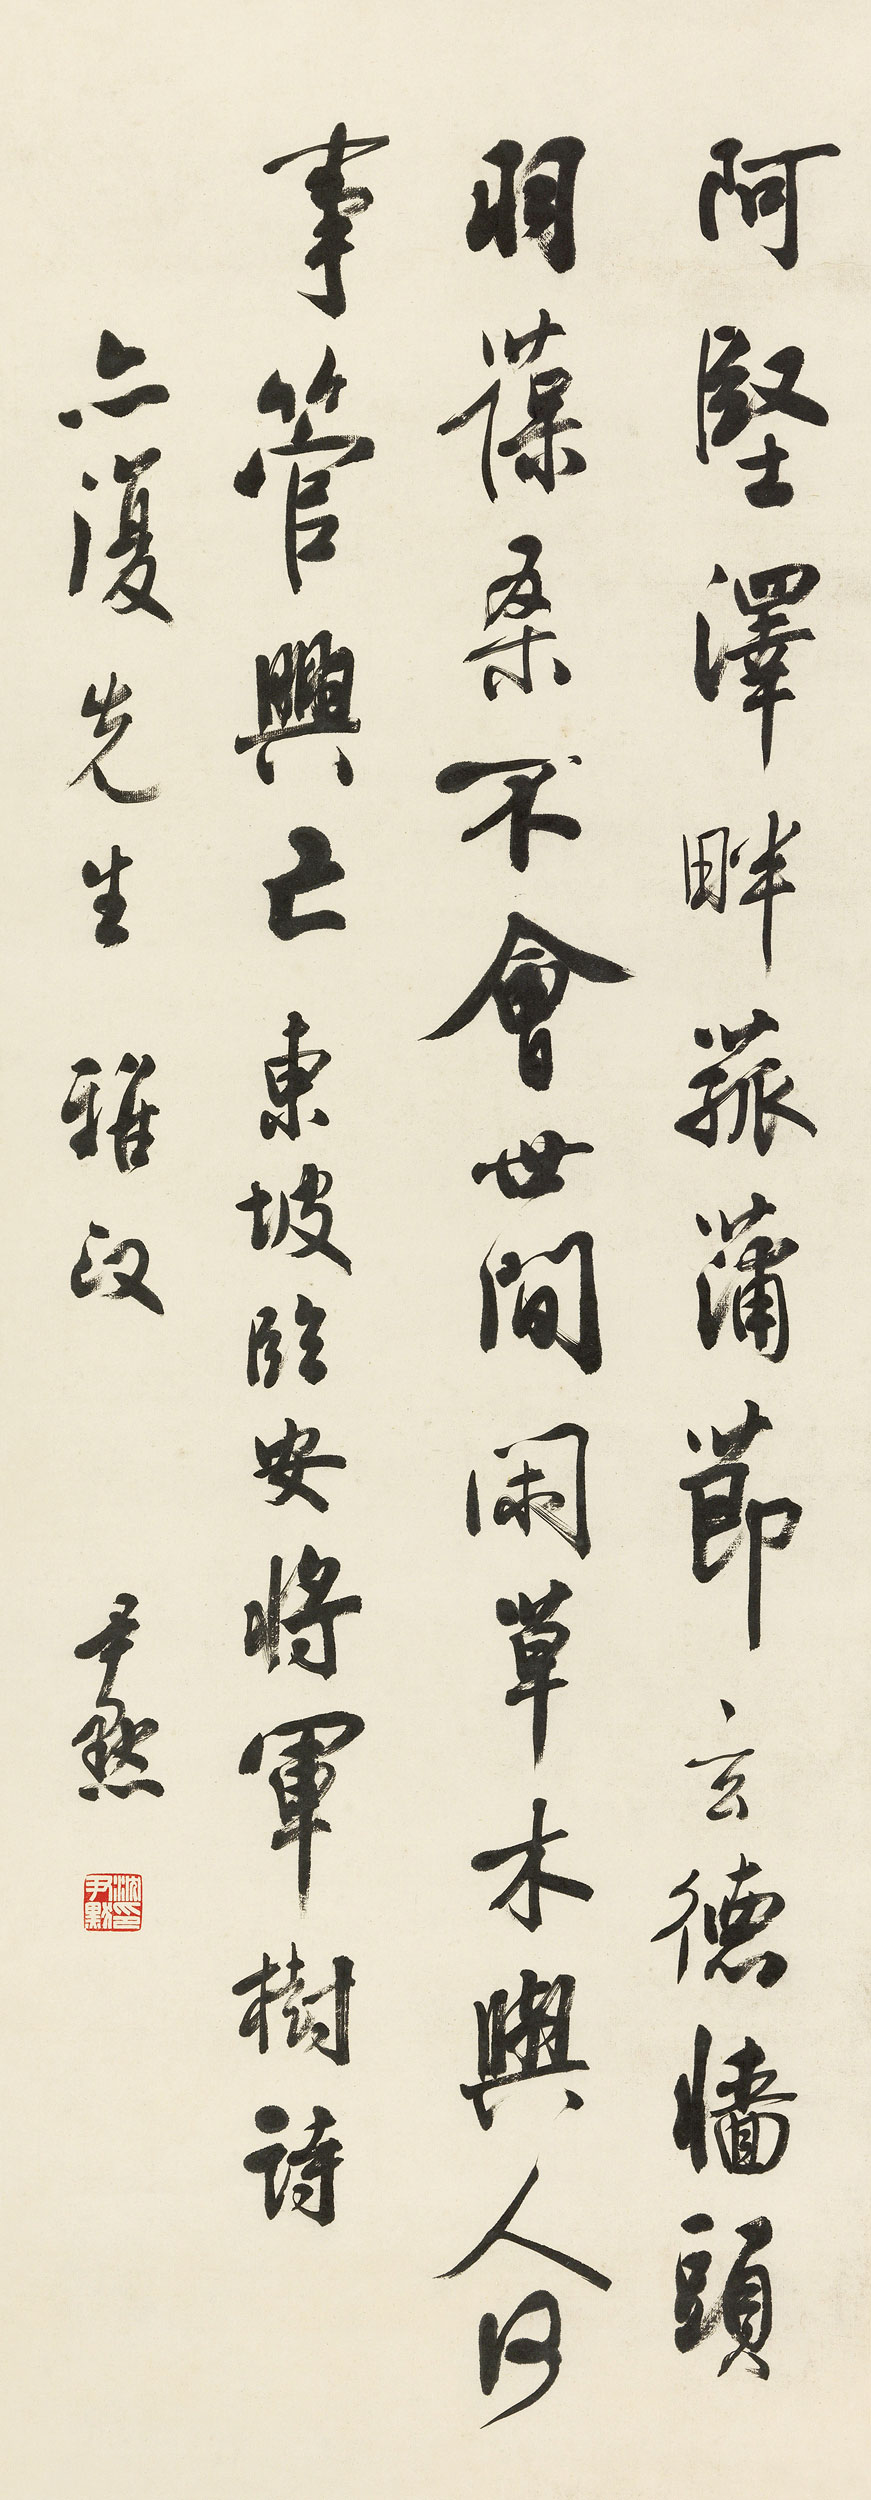 阿堅澤畔菰蒲節玄德牆頭
羽葆桑不會世間閑草木與人何
事管興亡東坡臨安將軍樹詩
亦復先生雅政
尹默
沈尹默印